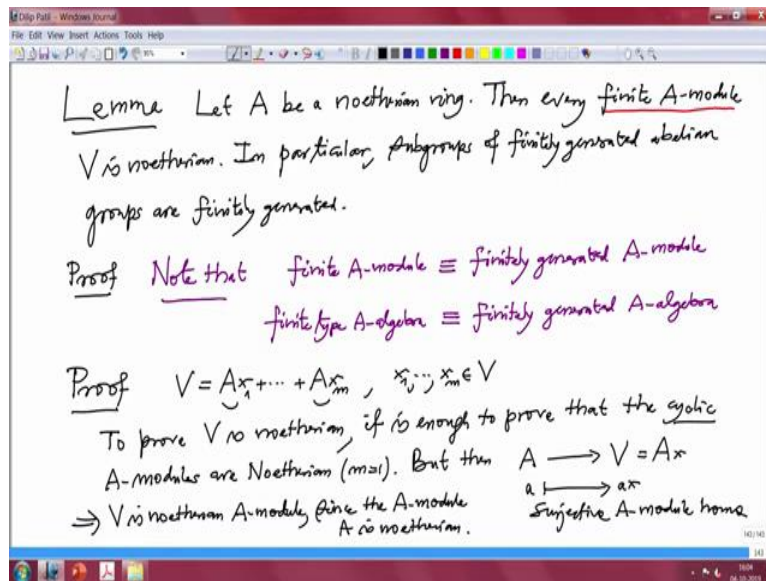 Dilip Patil - Windows Journal
File Edit View Insert Actions Tools Help
Lemma Let A be a noetherian ring. Then every finite A-module
V is noetherian. In particular, subgroups of finitely generated abelian
groups are finitely generated.
Proof Note that finite A-module ≡ finitely generated A-module
finite type A-algebra ≡ finitely generated A-algebra
Proof V = Ax₁ + ⋯ + Axₘ , x₁, ⋯, xₘ ∈ V
To prove V is noetherian, it is enough to prove that the cyclic
A-modules are Noetherian (m=1). But then A ⟶ V = Ax
a ⟼ ax
⇒ V is noetherian A-module, since the A-module
A is noetherian.
Surjective A-module homo
143/143
143
16:04
04-10-2019